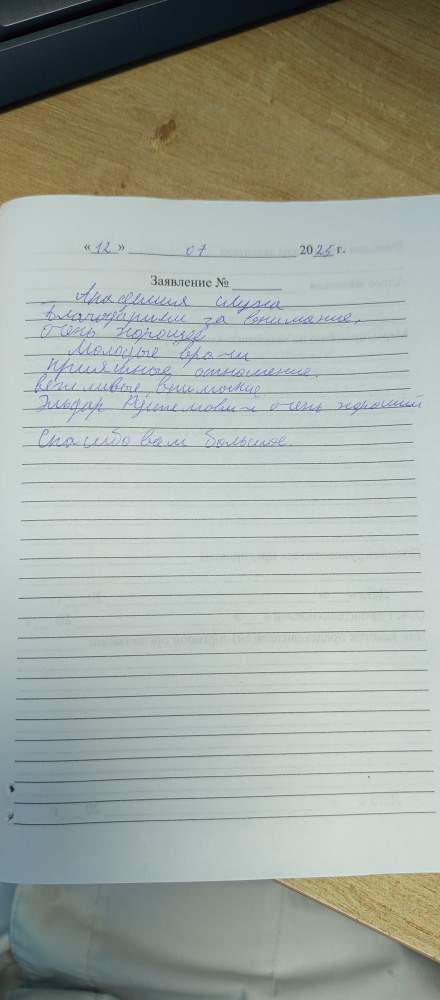 « 12 » 07 2025 г.
Заявление №
Академия слуха
Благодарим за внимание,
очень хорошие
Молодые врачи
приятные отношение.
вежливые внимание
Эльдар очень хороший
Спасибо вам большое.